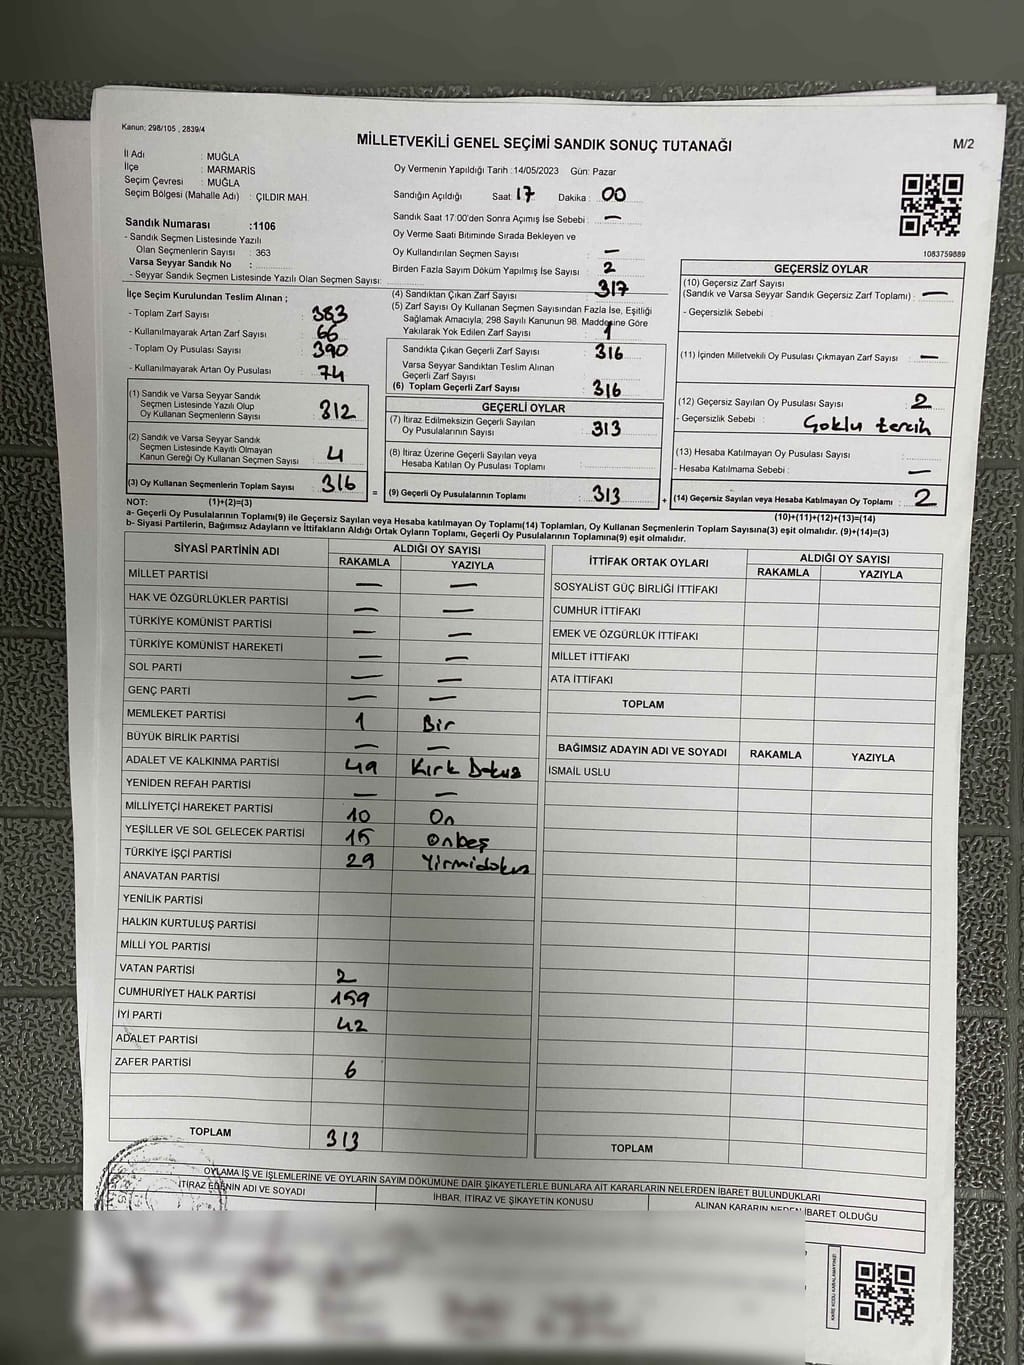 Kanun; 298/105 , 2839/4
MİLLETVEKİLİ GENEL SEÇİMİ SANDIK SONUÇ TUTANAĞI
M/2
İl Adı : MUĞLA
İlçe : MARMARİS
Seçim Çevresi : MUĞLA
Seçim Bölgesi (Mahalle Adı) : ÇILDIR MAH.
Oy Vermenin Yapıldığı Tarih :14/05/2023 Gün: Pazar
Sandığın Açıldığı Saat: 17 Dakika : 00
Sandık Saat 17:00'den Sonra Açımış İse Sebebi : —
Oy Verme Saati Bitiminde Sırada Bekleyen ve
Oy Kullandırılan Seçmen Sayısı : —
Birden Fazla Sayım Döküm Yapılmış İse Sayısı : 2
1083759889
Sandık Numarası :1106
- Sandık Seçmen Listesinde Yazılı
Olan Seçmenlerin Sayısı : 363
Varsa Seyyar Sandık No :
- Seyyar Sandık Seçmen Listesinde Yazılı Olan Seçmen Sayısı:
İlçe Seçim Kurulundan Teslim Alınan ;
- Toplam Zarf Sayısı : 383
- Kullanılmayarak Artan Zarf Sayısı : 66
- Toplam Oy Pusulası Sayısı : 390
- Kullanılmayarak Artan Oy Pusulası : 74
(1) Sandık ve Varsa Seyyar Sandık
Seçmen Listesinde Yazılı Olup
Oy Kullanan Seçmenlerin Sayısı : 312
(2) Sandık ve Varsa Seyyar Sandık
Seçmen Listesinde Kayıtlı Olmayan
Kanun Gereği Oy Kullanan Seçmen Sayısı : 4
(3) Oy Kullanan Seçmenlerin Toplam Sayısı : 316
(4) Sandıktan Çıkan Zarf Sayısı : 317
(5) Zarf Sayısı Oy Kullanan Seçmen Sayısından Fazla İse, Eşitliği
Sağlamak Amacıyla, 298 Sayılı Kanunun 98. Maddesine Göre
Yakılarak Yok Edilen Zarf Sayısı : 1
Sandıkta Çıkan Geçerli Zarf Sayısı : 316
Varsa Seyyar Sandıktan Teslim Alınan
Geçerli Zarf Sayısı :
(6) Toplam Geçerli Zarf Sayısı : 316
GEÇERLİ OYLAR
(7) İtiraz Edilmeksizin Geçerli Sayılan
Oy Pusulalarının Sayısı : 313
(8) İtiraz Üzerine Geçerli Sayılan veya
Hesaba Katılan Oy Pusulası Toplamı :
= (9) Geçerli Oy Pusulalarının Toplamı : 313 +
GEÇERSİZ OYLAR
(10) Geçersiz Zarf Sayısı
(Sandık ve Varsa Seyyar Sandık Geçersiz Zarf Toplamı) : —
- Geçersizlik Sebebi :
(11) İçinden Milletvekili Oy Pusulası Çıkmayan Zarf Sayısı : —
(12) Geçersiz Sayılan Oy Pusulası Sayısı : 2
- Geçersizlik Sebebi : Çoklu tercih
(13) Hesaba Katılmayan Oy Pusulası Sayısı :
- Hesaba Katılmama Sebebi : —
(14) Geçersiz Sayılan veya Hesaba Katılmayan Oy Toplamı : 2
NOT: (1)+(2)=(3)
(10)+(11)+(12)+(13)=(14)
a- Geçerli Oy Pusulalarının Toplamı(9) ile Geçersiz Sayılan veya Hesaba katılmayan Oy Toplamı(14) Toplamları, Oy Kullanan Seçmenlerin Toplam Sayısına(3) eşit olmalıdır. (9)+(14)=(3)
b- Siyasi Partilerin, Bağımsız Adayların ve İttifakların Aldığı Ortak Oyların Toplamı, Geçerli Oy Pusulalarının Toplamına(9) eşit olmalıdır.
SİYASİ PARTİNİN ADI ALDIĞI OY SAYISI
RAKAMLA YAZIYLA
MİLLET PARTİSİ — —
HAK VE ÖZGÜRLÜKLER PARTİSİ — —
TÜRKİYE KOMÜNİST PARTİSİ — —
TÜRKİYE KOMÜNİST HAREKETİ — —
SOL PARTİ — —
GENÇ PARTİ — —
MEMLEKET PARTİSİ 1 Bir
BÜYÜK BİRLİK PARTİSİ — —
ADALET VE KALKINMA PARTİSİ 49 Kırk Dokuz
YENİDEN REFAH PARTİSİ — —
MİLLİYETÇİ HAREKET PARTİSİ 10 On
YEŞİLLER VE SOL GELECEK PARTİSİ 15 Onbeş
TÜRKİYE İŞÇİ PARTİSİ 29 Yirmidokuz
ANAVATAN PARTİSİ
YENİLİK PARTİSİ
HALKIN KURTULUŞ PARTİSİ
MİLLİ YOL PARTİSİ
VATAN PARTİSİ 2
CUMHURİYET HALK PARTİSİ 159
İYİ PARTİ 42
ADALET PARTİSİ
ZAFER PARTİSİ 6
TOPLAM 313
İTTİFAK ORTAK OYLARI ALDIĞI OY SAYISI
RAKAMLA YAZIYLA
SOSYALİST GÜÇ BİRLİĞİ İTTİFAKI
CUMHUR İTTİFAKI
EMEK VE ÖZGÜRLÜK İTTİFAKI
MİLLET İTTİFAKI
ATA İTTİFAKI
TOPLAM
BAĞIMSIZ ADAYIN ADI VE SOYADI RAKAMLA YAZIYLA
İSMAİL USLU
TOPLAM
OYLAMA İŞ VE İŞLEMLERİNE VE OYLARIN SAYIM DÖKÜMÜNE DAİR ŞİKAYETLERLE BUNLARA AİT KARARLARIN NELERDEN İBARET BULUNDUKLARI
İTİRAZ EDENİN ADI VE SOYADI İHBAR, İTİRAZ VE ŞİKAYETİN KONUSU ALINAN KARARIN NEDEN İBARET OLDUĞU
KARE KODU KARALAMAYINIZ!